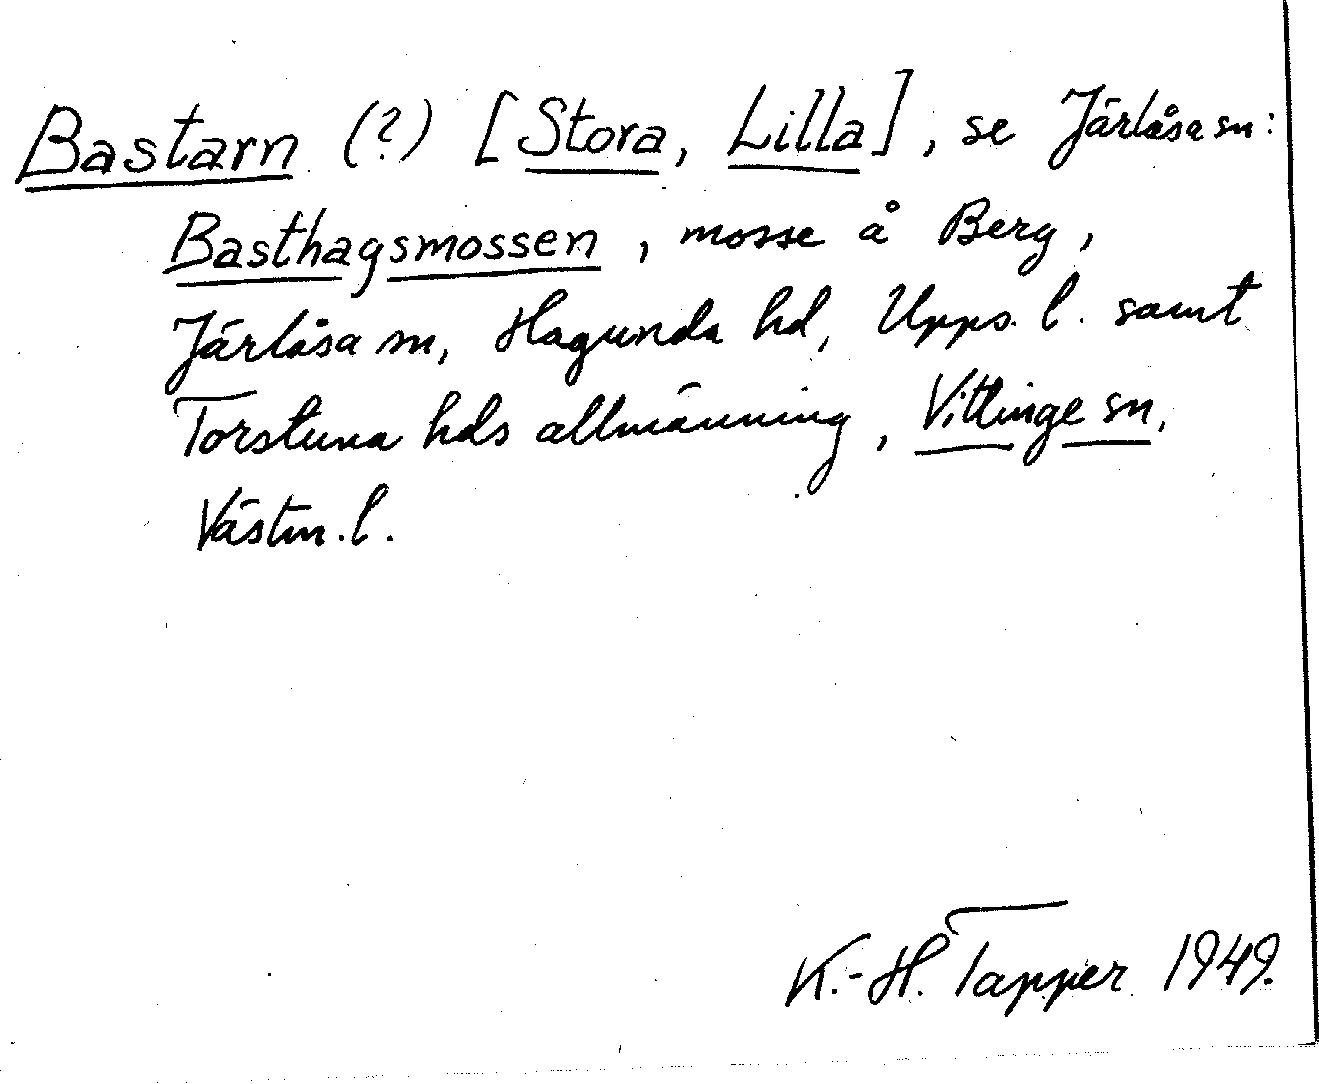 Bastarn (?) [Stora, Lilla], se Järlåsa sn:
Basthagsmossen, mosse å Berg,
Järlåsa sn, Hagunda hd, Upps. l. samt
Torstuna hds allmänning, Vittinge sn,
Västm. l.
K.-H. Tapper 1949.